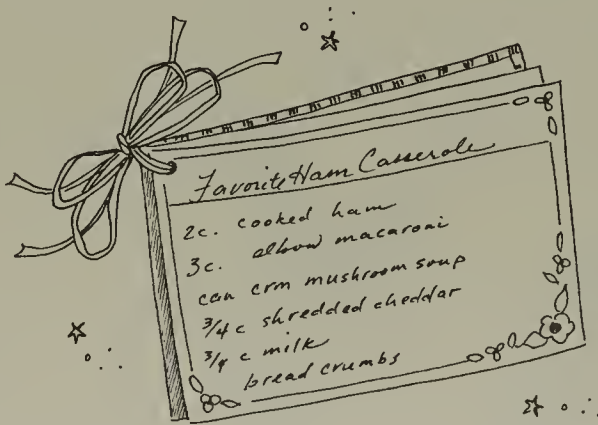 Favorite Ham Casserole
2c. cooked ham
3c. elbow macaroni
can crm mushroom soup
3/4 c shredded cheddar
3/4 c milk
bread crumbs